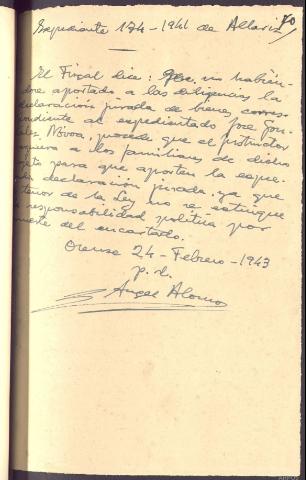 Expediente 174-1941 de Allariz
El Fiscal dice: Que, no habién-
dose aportado a las diligencias la
declaración jurada de bienes, corres-
pondiente al expedientado Jose Gon-
zalez Novoa, procede que el instructor
requiera a los familiares de dicho
para que aporten la expre-
sada declaración jurada, ya que
tenor de la Ley no se extingue
la responsabilidad política por
muerte del encartado.
Orense 24 - Febrero - 1943
p. d.
Angel Alonso